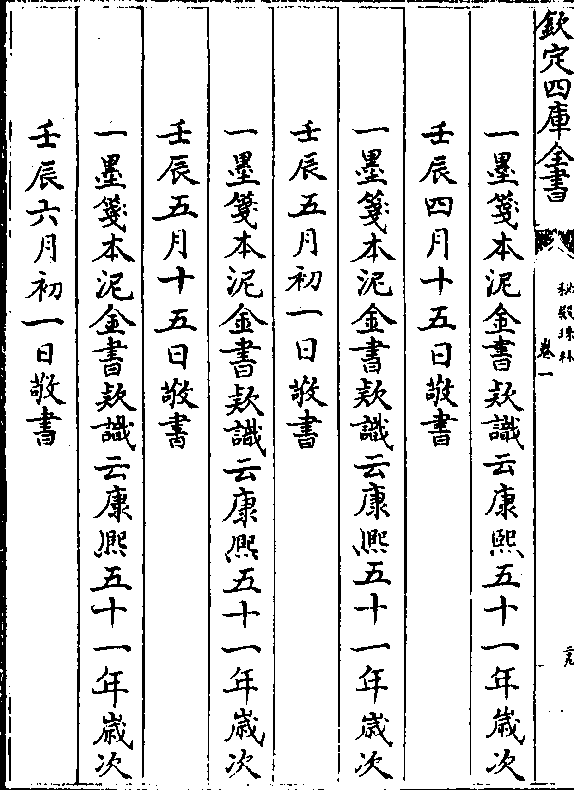 欽定四庫全書
秘殿珠林
卷一
一墨箋本泥金書款識云康熙五十一年歲次
壬辰四月十五日敬書
一墨箋本泥金書款識云康熙五十一年歲次
壬辰五月初一日敬書
一墨箋本泥金書款識云康熙五十一年歲次
壬辰五月十五日敬書
一墨箋本泥金書款識云康熙五十一年歲次
壬辰六月初一日敬書